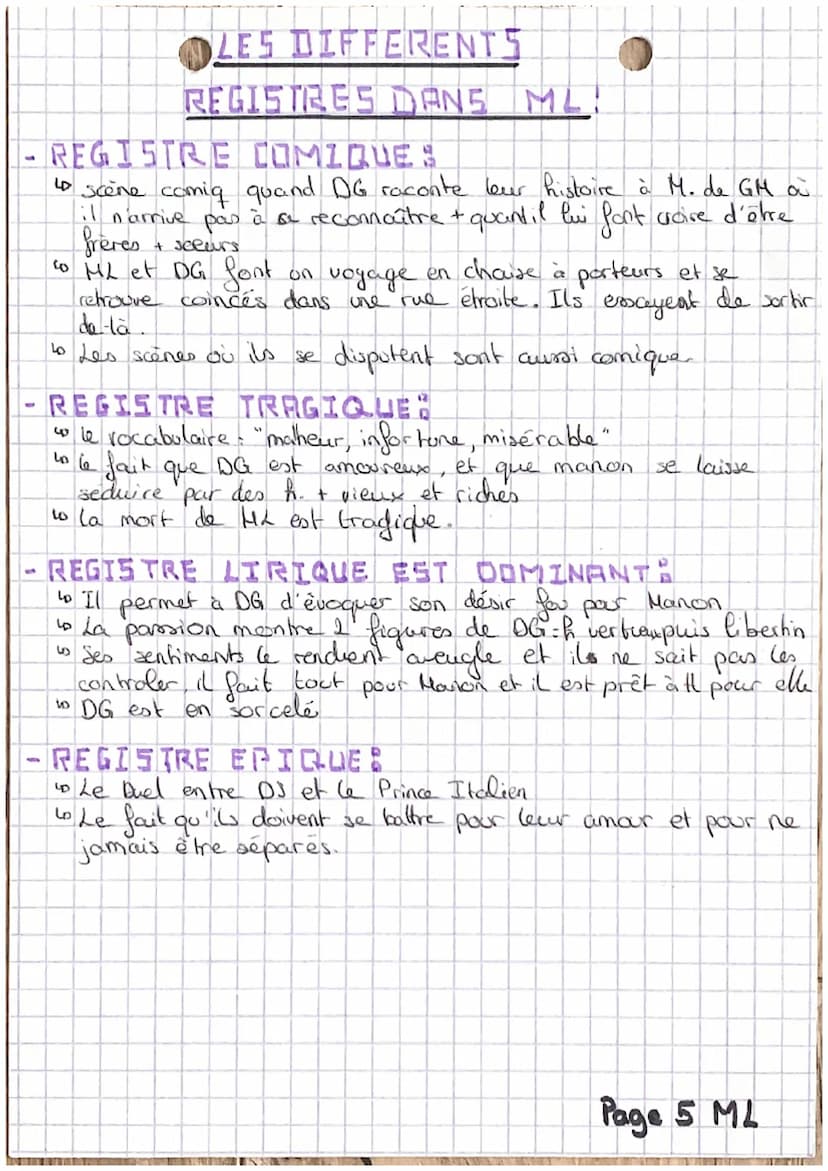 LES DIFFERENTS
REGISTRES DANS ML:
- REGISTRE COMIQUE:
↳ scène comiq quand DG raconte leur histoire à M. de GM où
il n'arrive pas à se reconnaître + quand il lui font croire d'être
frères + soeurs
↳ ML et DG font un voyage en chaise à porteurs et se
retrouve coincés dans une rue étroite. Ils essayent de sortir
de-là.
↳ Les scènes où ils se disputent sont aussi comique.
- REGISTRE TRAGIQUE:
↳ le vocabulaire: "malheur, infortune, misérable"
↳ le fait que DG est amoureux, et que manon se laisse
séduire par des h. + vieux et riches
↳ la mort de ML est tragique.
- REGISTRE LIRIQUE EST DOMINANT:
↳ Il permet à DG d'évoquer son désir fou par Manon
↳ La passion montre 2 figures de DG = h vertueux puis libertin
↳ Ses sentiments le rendent aveugle et ils ne sait pas les
controler, il fait tout pour Manon et il est prêt à tt pour elle
↳ DG est en sorcelé
- REGISTRE EPIQUE:
↳ Le Duel entre DJ et le Prince Italien
↳ Le fait qu'ils doivent se battre pour leur amour et pour ne
jamais être séparés.
Page 5 ML